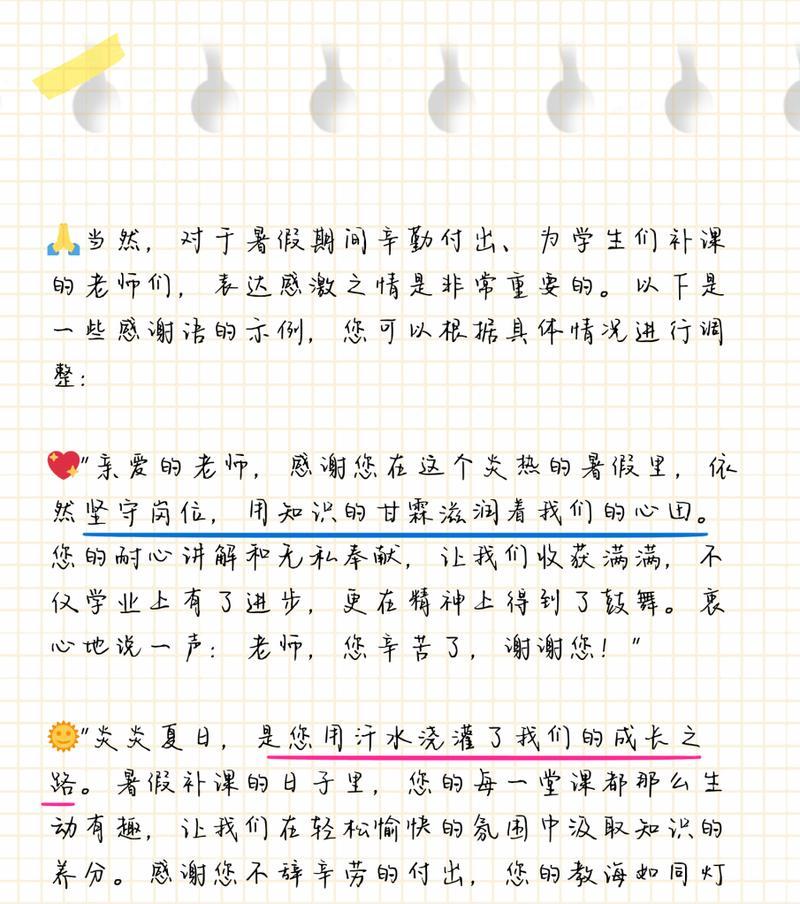 🙏当然，对于暑假期间辛勤付出、为学生们补课
的老师们，表达感激之情是非常重要的。以下是
一些感谢语的示例，您可以根据具体情况进行调
整：
💖"亲爱的老师，感谢您在这个炎热的暑假里，依
然坚守岗位，用知识的甘霖滋润着我们的心田。
您的耐心讲解和无私奉献，让我们收获满满，不
仅学业上有了进步，更在精神上得到了鼓舞。衷
心地说一声：老师，您辛苦了，谢谢您！"
🌞"炎炎夏日，是您用汗水浇灌了我们的成长之
路。暑假补课的日子里，您的每一堂课都那么生
动有趣，让我们在轻松愉快的氛围中汲取知识的
养分。感谢您不辞辛劳的付出，您的教诲如同灯